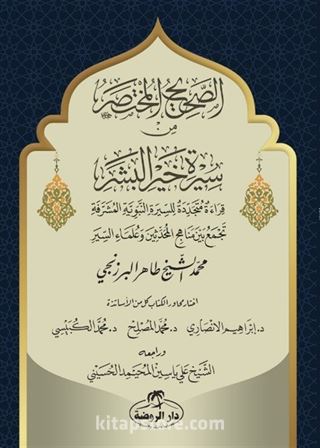 الصحيح المختصر ﷺ
من
سيرة خير البشر
قراءة متجددة للسيرة النبوية المشرفة
تجمع بين مناهج المحدثين وعلماء السير
محمد الشيخ طاهر البرزنجي
اختار محاور الكتاب كل من الأساتذة
د. إبراهيم الأنصاري د. محمد المصلح د. محمد الكبيسي
وراجعه
الشيخ علي ياسين المحيمد الحسيني
دار الروضة
kitapstore.com